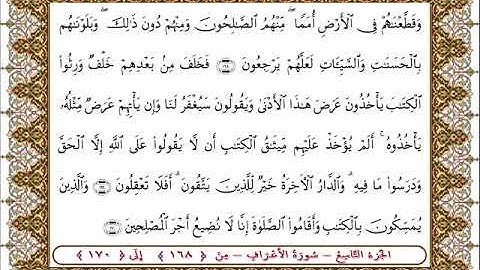 وَقَطَّعْنَٰهُمْ فِى ٱلْأَرْضِ أُمَمًا ۖ مِّنْهُمُ ٱلصَّٰلِحُونَ وَمِنْهُمْ دُونَ ذَٰلِكَ ۖ وَبَلَوْنَٰهُم
بِٱلْحَسَنَٰتِ وَٱلسَّيِّـَٔاتِ لَعَلَّهُمْ يَرْجِعُونَ ۝١٦٨ فَخَلَفَ مِنۢ بَعْدِهِمْ خَلْفٌ وَرِثُوا۟
ٱلْكِتَٰبَ يَأْخُذُونَ عَرَضَ هَٰذَا ٱلْأَدْنَىٰ وَيَقُولُونَ سَيُغْفَرُ لَنَا وَإِن يَأْتِهِمْ عَرَضٌ مِّثْلُهُۥ
يَأْخُذُوهُ ۚ أَلَمْ يُؤْخَذْ عَلَيْهِم مِّيثَٰقُ ٱلْكِتَٰبِ أَن لَّا يَقُولُوا۟ عَلَى ٱللَّهِ إِلَّا ٱلْحَقَّ
وَدَرَسُوا۟ مَا فِيهِ ۗ وَٱلدَّارُ ٱلْءَاخِرَةُ خَيْرٌ لِّلَّذِينَ يَتَّقُونَ ۗ أَفَلَا تَعْقِلُونَ ۝١٦٩ وَٱلَّذِينَ
يُمَسِّكُونَ بِٱلْكِتَٰبِ وَأَقَامُوا۟ ٱلصَّلَوٰةَ إِنَّا لَا نُضِيعُ أَجْرَ ٱلْمُصْلِحِينَ ۝١٧٠
الجزء التاسع - سورة الأعراف - من ﴿ ١٦٨ ﴾ إلى ﴿ ١٧٠ ﴾